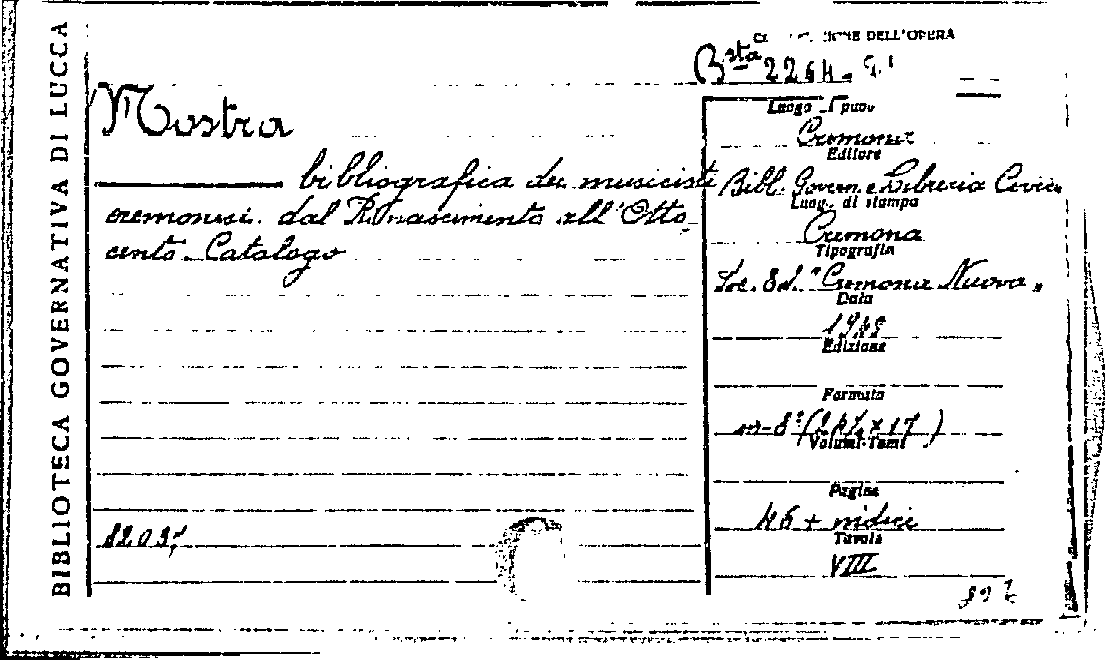 BIBLIOTECA GOVERNATIVA DI LUCCA
DELL'OPERA
Bsta 2264
Mostra
bibliografica dei musicisti
cremonesi dal Rinascimento all'Otto-
cento. Catalogo
Luogo
Cremona
Editore
Bibl. Govern. e Libreria Civica
Luogo di stampa
Cremona
Tipografia
Soc. Ed. "Cremona Nuova"
Data
Edizione
Formato
in-8°
Volumi-Tomi
Pagine
46 + indici
Tavole
VIII